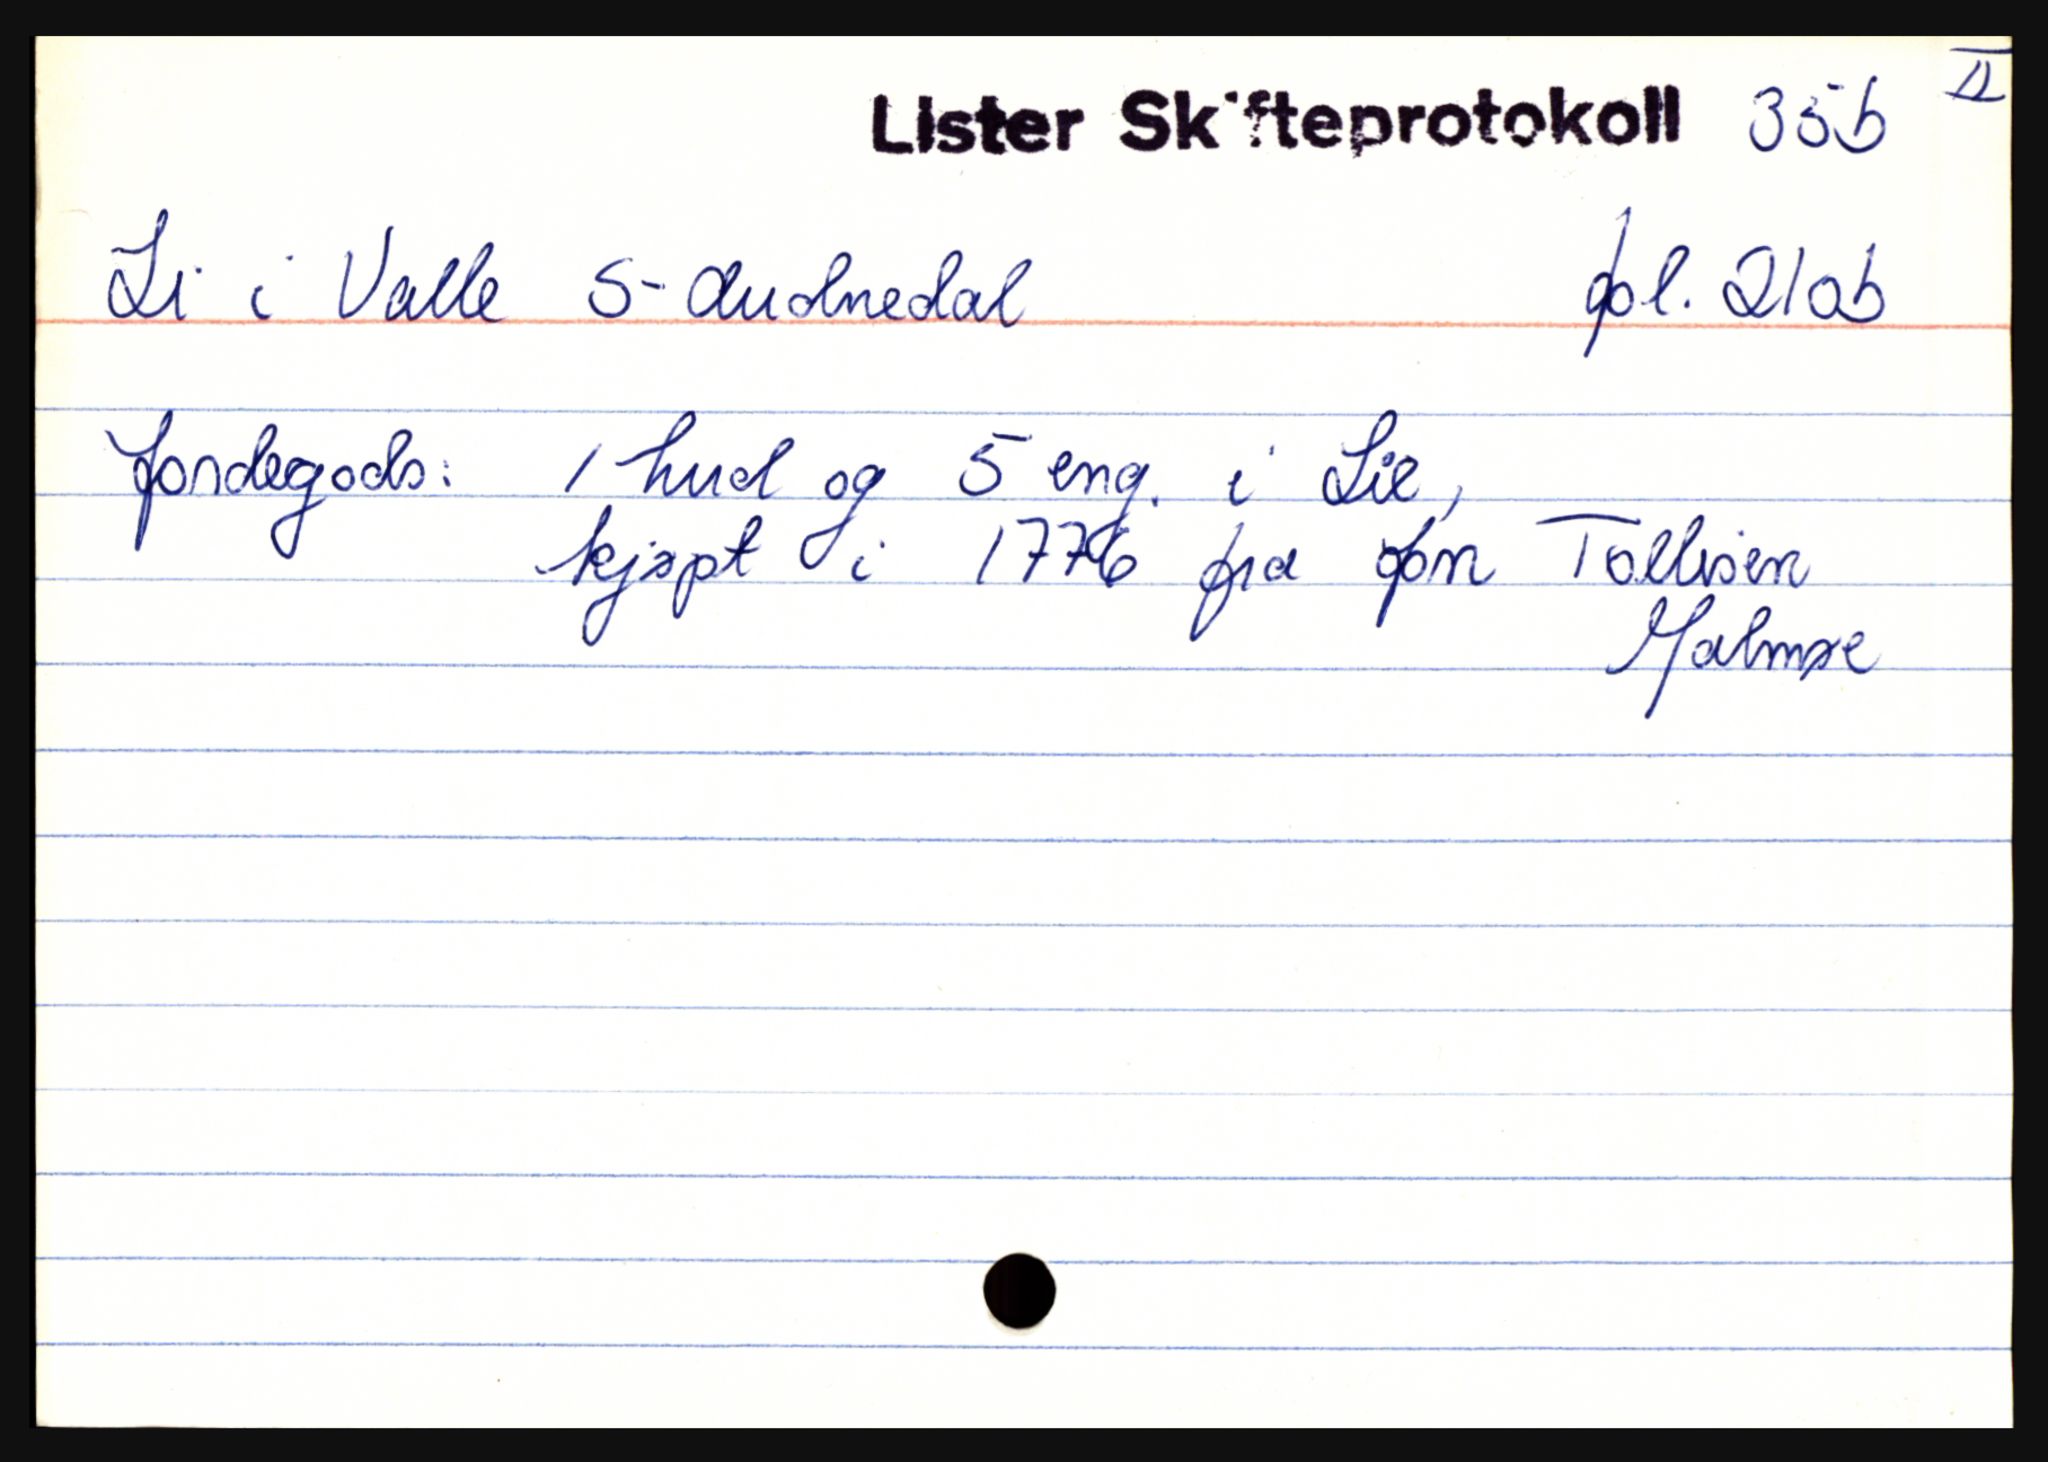 II
Lister Skifteprotokoll 35b
Li i Valle S-Audnedal fol. 210b
Jordegods: 1 hud og 5 eng. i Lie,
kjøpt i 1776 fra Jon Tollisen
Malmøe